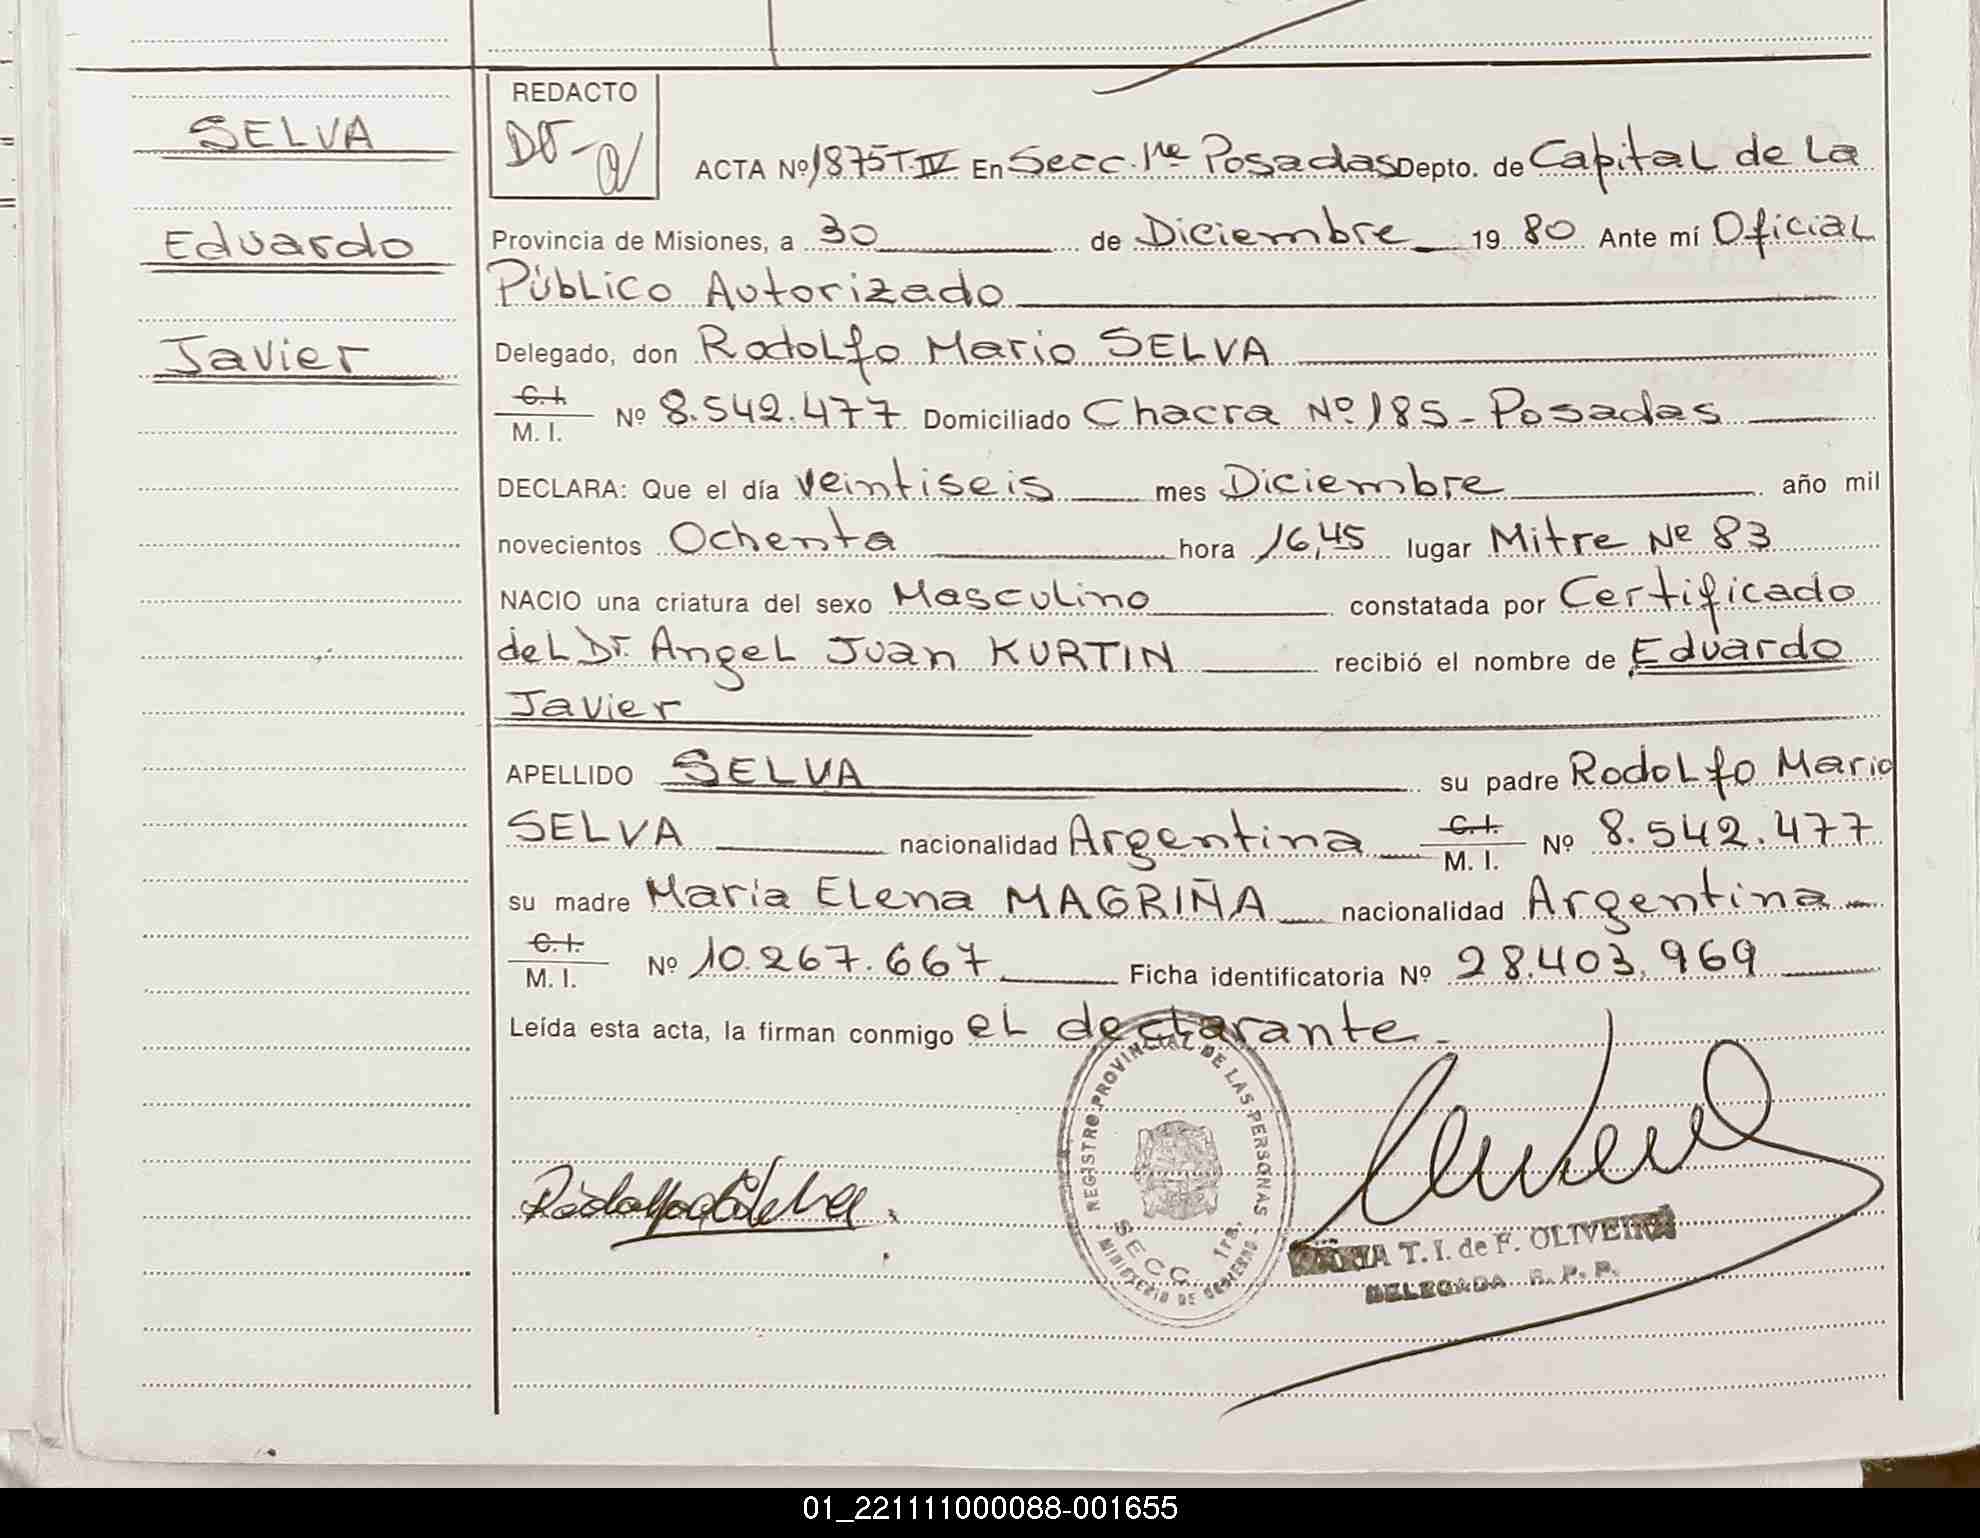 SELVA
Eduardo
Javier
REDACTO
ACTA Nº 1875 T. IV En Secc. 1ra Posadas Depto. de Capital de La
Provincia de Misiones, a 30 de Diciembre 19 80 Ante mí Oficial
Público Autorizado
Delegado, don Rodolfo Mario SELVA
C.I.
M. I. Nº 8.542.477 Domiciliado Chacra Nº 185 - Posadas
DECLARA: Que el día veintiseis mes Diciembre año mil
novecientos Ochenta hora 16,45 lugar Mitre Nº 83
NACIO una criatura del sexo Masculino constatada por Certificado
del Dr. Angel Juan KURTIN recibió el nombre de Eduardo
Javier
APELLIDO SELVA su padre Rodolfo Mario
SELVA nacionalidad Argentina C.I. M. I. Nº 8.542.477
su madre María Elena MAGRIÑA nacionalidad Argentina
C.I.
M. I. Nº 10.267.667 Ficha identificatoria Nº 28.403.969
Leída esta acta, la firman conmigo el declarante -
REGISTRO PROVINCIAL DE LAS PERSONAS
SECC. 1ra.
MINISTERIO DE GOBIERNO
MARIA T. I. de F. OLIVEIRA
DELEGADA R. P. P.
01_221111000088-001655